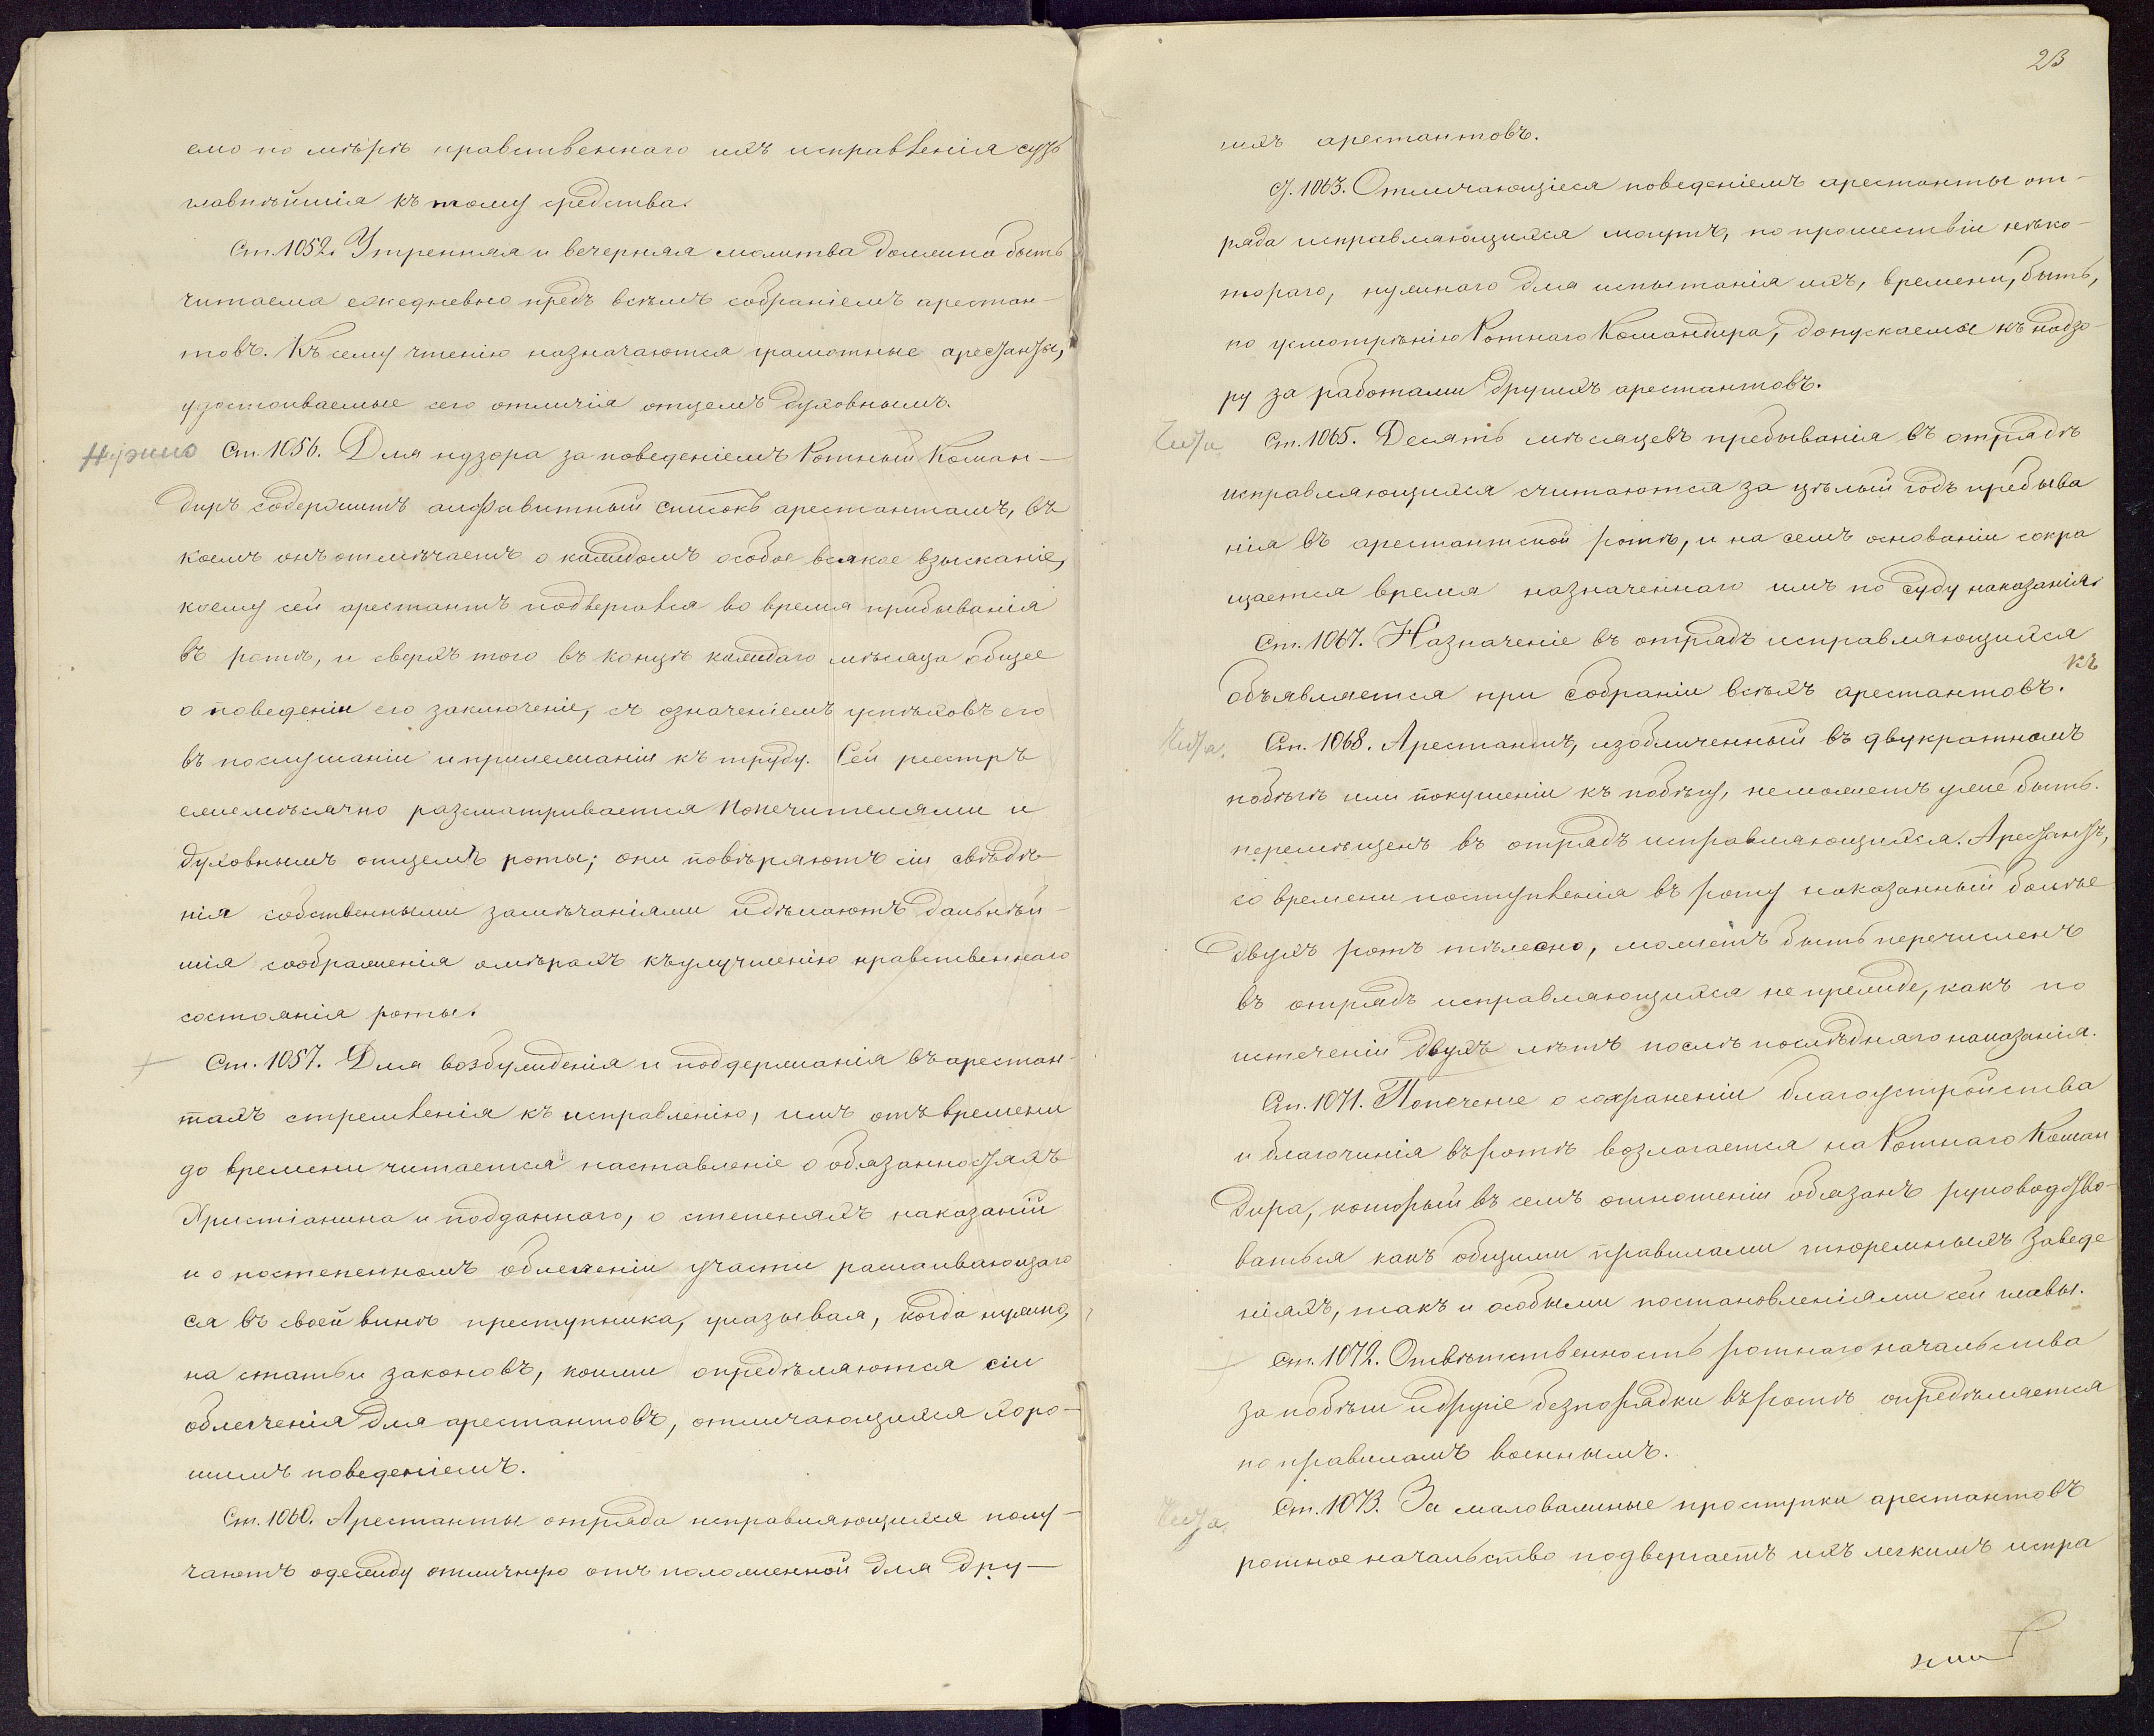 емо по мѣрѣ нравственнаго ихъ исправленія суть
главнѣйшія къ тому средства.
Ст. 1052. Утренняя и вечерняя молитва должна быть
читаема ежедневно предъ всѣмъ собраніемъ арестан-
товъ. Къ сему чтенію назначаются грамотные арестанты,
удостоиваемые сего отличія отцемъ духовнымъ.
Нужно Ст. 1056. Для надзора за поведеніемъ Ротный Коман-
диръ содержитъ алфавитный списокъ арестантамъ, въ
коемъ онъ отмѣчаетъ о каждомъ особое всякое взысканіе,
коему сей арестантъ подвергался во время прибыванія
въ ротѣ, и сверхъ того въ концѣ каждаго мѣсяца общее
о поведеніи его заключеніе, съ означеніемъ успѣховъ его
въ послушаніи и прилежаніи къ труду. Сей реестръ
ежемѣсячно разсматривается Попечителями и
духовнымъ отцемъ роты; они повѣряютъ сіи свѣдѣ-
нія собственными замѣчаніями и дѣлаютъ дальнѣй-
шія соображенія о мѣрахъ къ улучшенію нравственнаго
состоянія роты.
Ст. 1057. Для возбужденія и поддержанія въ арестан-
тахъ стремленія къ исправленію, имъ отъ времени
до времени читается наставленіе о обязанностяхъ
Христіанина и подданнаго, о степеняхъ наказаній
и о постепенномъ облегченіи участи раскаивающаго
ся въ своей винѣ преступника, указывая, когда нужно,
на статьи законовъ, коими опредѣляются сіи
облегченія для арестантовъ, отличающихся хоро-
шимъ поведеніемъ.
Ст. 1060. Арестанты отряда исправляющихся полу-
чаютъ одежду отличную отъ положенной для дру-
23
гихъ арестантовъ.
Ст. 1063. Отличающіеся поведеніемъ арестанты от-
ряда исправляющихся могутъ, по прошествіи нѣко-
тораго, нужнаго для испытанія ихъ, времени, быть,
по усмотрѣнію Ротнаго Командира, допускаемы къ надзо-
ру за работами другихъ арестантовъ.
Ст. 1065. Десять мѣсяцевъ пребыванія въ отрядѣ
исправляющихся считаются за цѣлый годъ пребыва
нія въ арестантской ротѣ, и на семъ основаніи сокра
щается время назначеннаго имъ по суду наказанія.
Ст. 1067. Назначеніе въ отрядъ исправляющихся
объявляется при собраніи всѣхъ арестантовъ. къ
Ст. 1068. Арестантъ, изобличенный въ двукратномъ
побѣгѣ или покушеніи къ побѣгу, не можетъ уже быть
перемѣщенъ въ отрядъ исправляющихся. Арестантъ,
со времени поступленія въ роту наказанный болѣе
двухъ ротъ тѣлесно, можетъ быть перечисленъ
въ отрядъ исправляющихся не прежде, какъ по
истеченіи двухъ лѣтъ послѣ послѣдняго наказанія.
Ст. 1071. Попеченіе о сохраненіи благоустройства
и благочинія въ ротѣ возлагается на Ротнаго Коман
дира, который въ семъ отношеніи обязанъ руководство-
ваться какъ общими правилами тюремныхъ заведе
ніяхъ, такъ и особыми постановленіями сей главы.
Ст. 1072. Отвѣтственность ротнаго начальства
за побѣги и другіе безпорядки въ ротѣ опредѣляется
по правиламъ военнымъ.
Ст. 1073. За маловажные проступки арестантовъ
ротное начальство подвергаетъ ихъ легкимъ испра